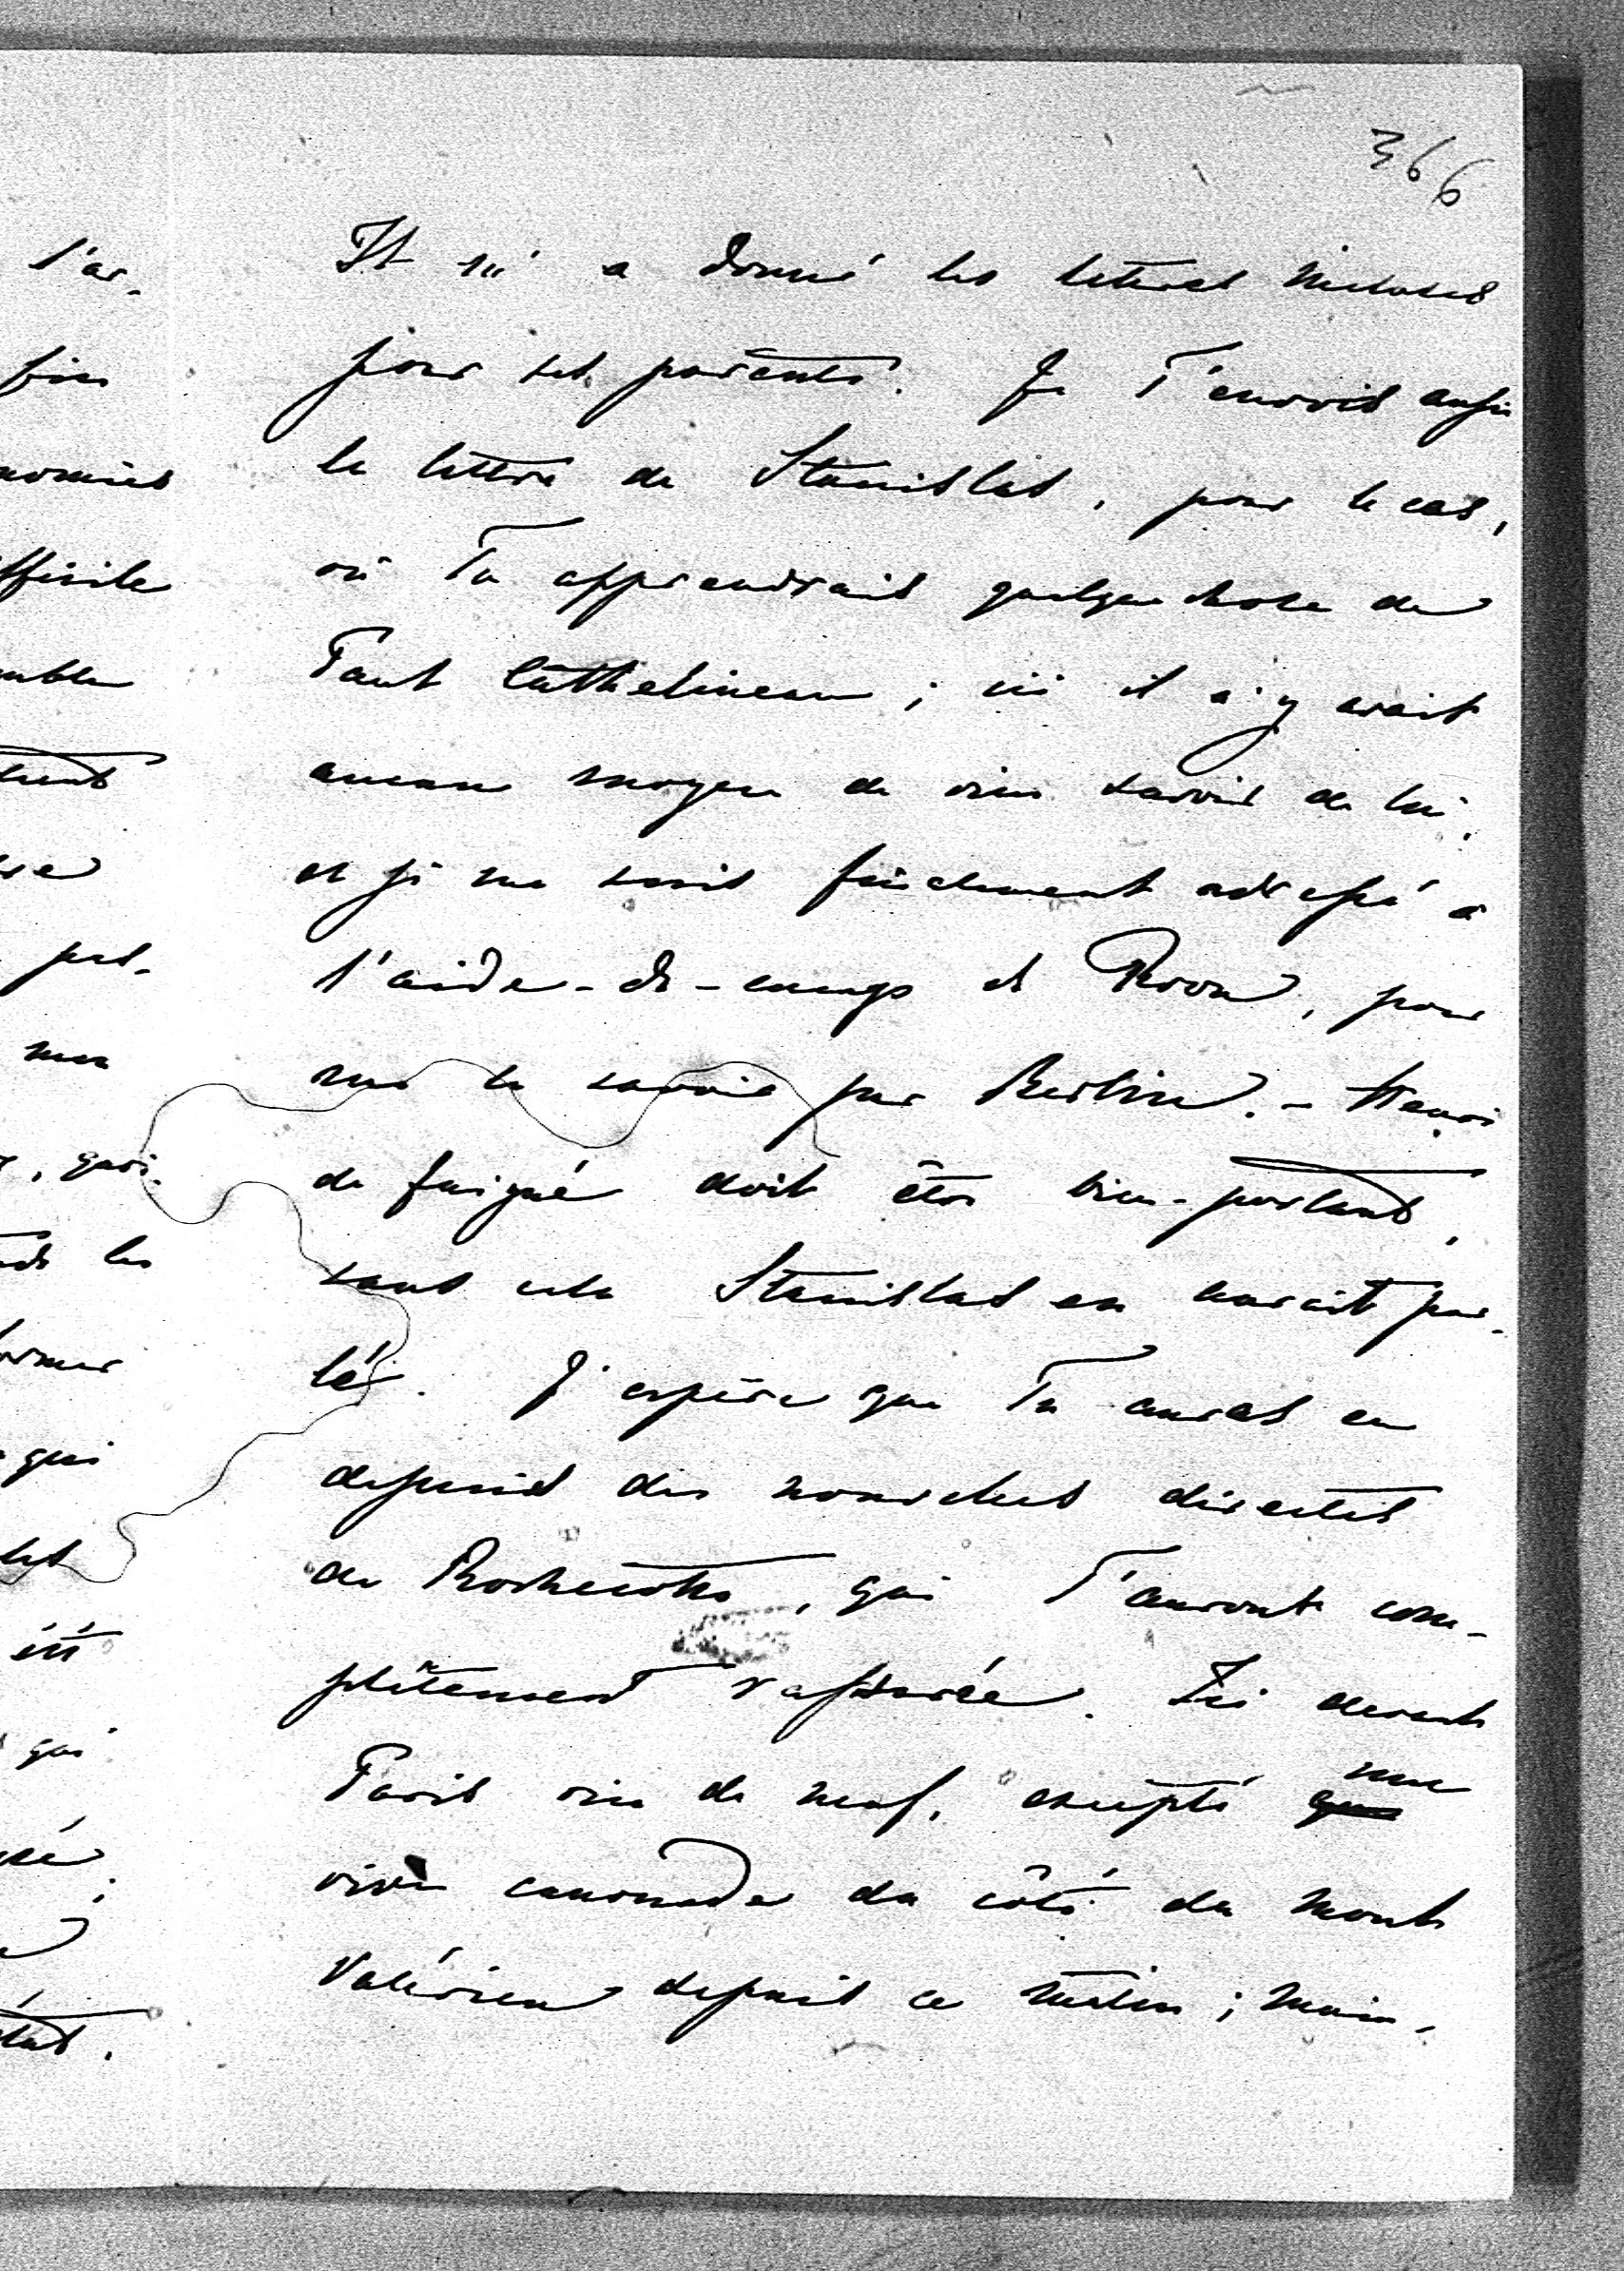 366
Il m'a donné les lettres incluses
pour ses parents. Je T'envois aussi
la lettre de Stanislas, pour le cas,
où Tu apprendrais quelque chose de
Paul Cathelineau; ici il n'y avait
aucune moyen de rien savoir de lui,
et je me suis finalement adressé à
l'aide-de-camps de Roon, pour
me le savoir par Berlin. - Henri
de doit être bien-portant,
sans cela Stanislas en aurait par-
lé. J'espère que Tu auras eu
depuis des nouvelles directes
de Rochecotte, qui T'auront com-
plètement rassurée. Ici devant
Paris rien de neuf, excepté une
vive canonade du côté du Mont
Valérien depuis ce matin; main-
l'ar-
fin
fficile
pas-
mon
qui
les
qui
été
qui